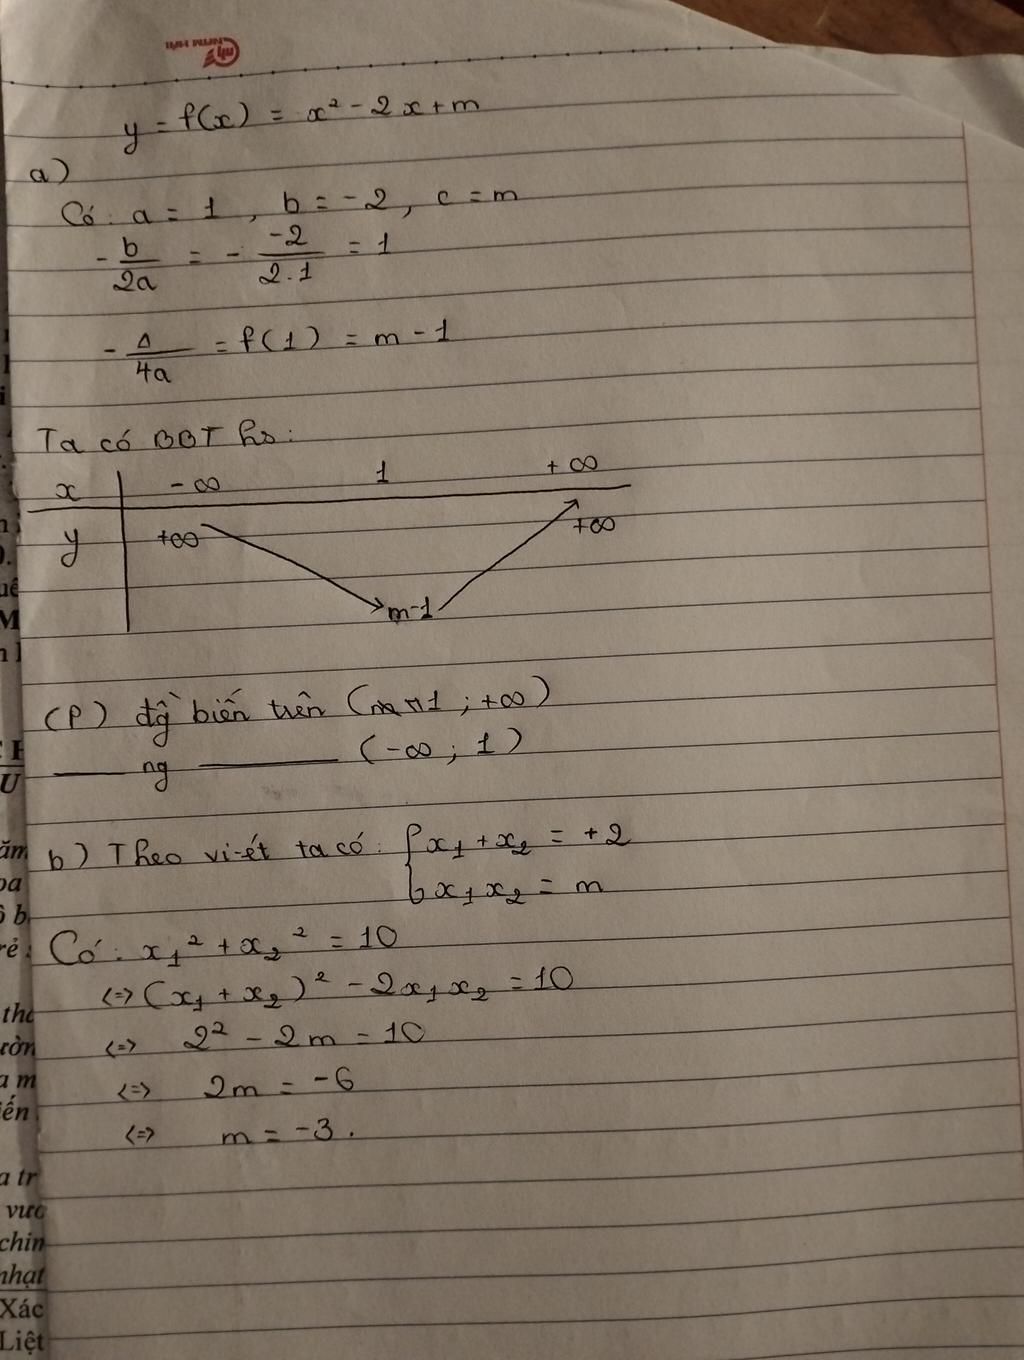 y = f(x) = x² - 2x + m
a)
Có: a = 1, b = -2, c = m
-b/2a = - -2/2.1 = 1
-Δ/4a = f(1) = m - 1
Ta có BBT hs:
x | -∞ 1 +∞
y | +∞ m-1 +∞
(P) đg̀ biến trên ( 1 ; +∞)
ng (-∞ ; 1)
b) Theo vi-ét ta có: { x₁ + x₂ = +2
x₁x₂ = m
Có: x₁² + x₂² = 10
<=> (x₁ + x₂)² - 2x₁x₂ = 10
<=> 2² - 2m = 10
<=> 2m = -6
<=> m = -3.
ăm
tho
ườn
a m
iến
a tr
vực
chin
nhạt
Xác
Liệt